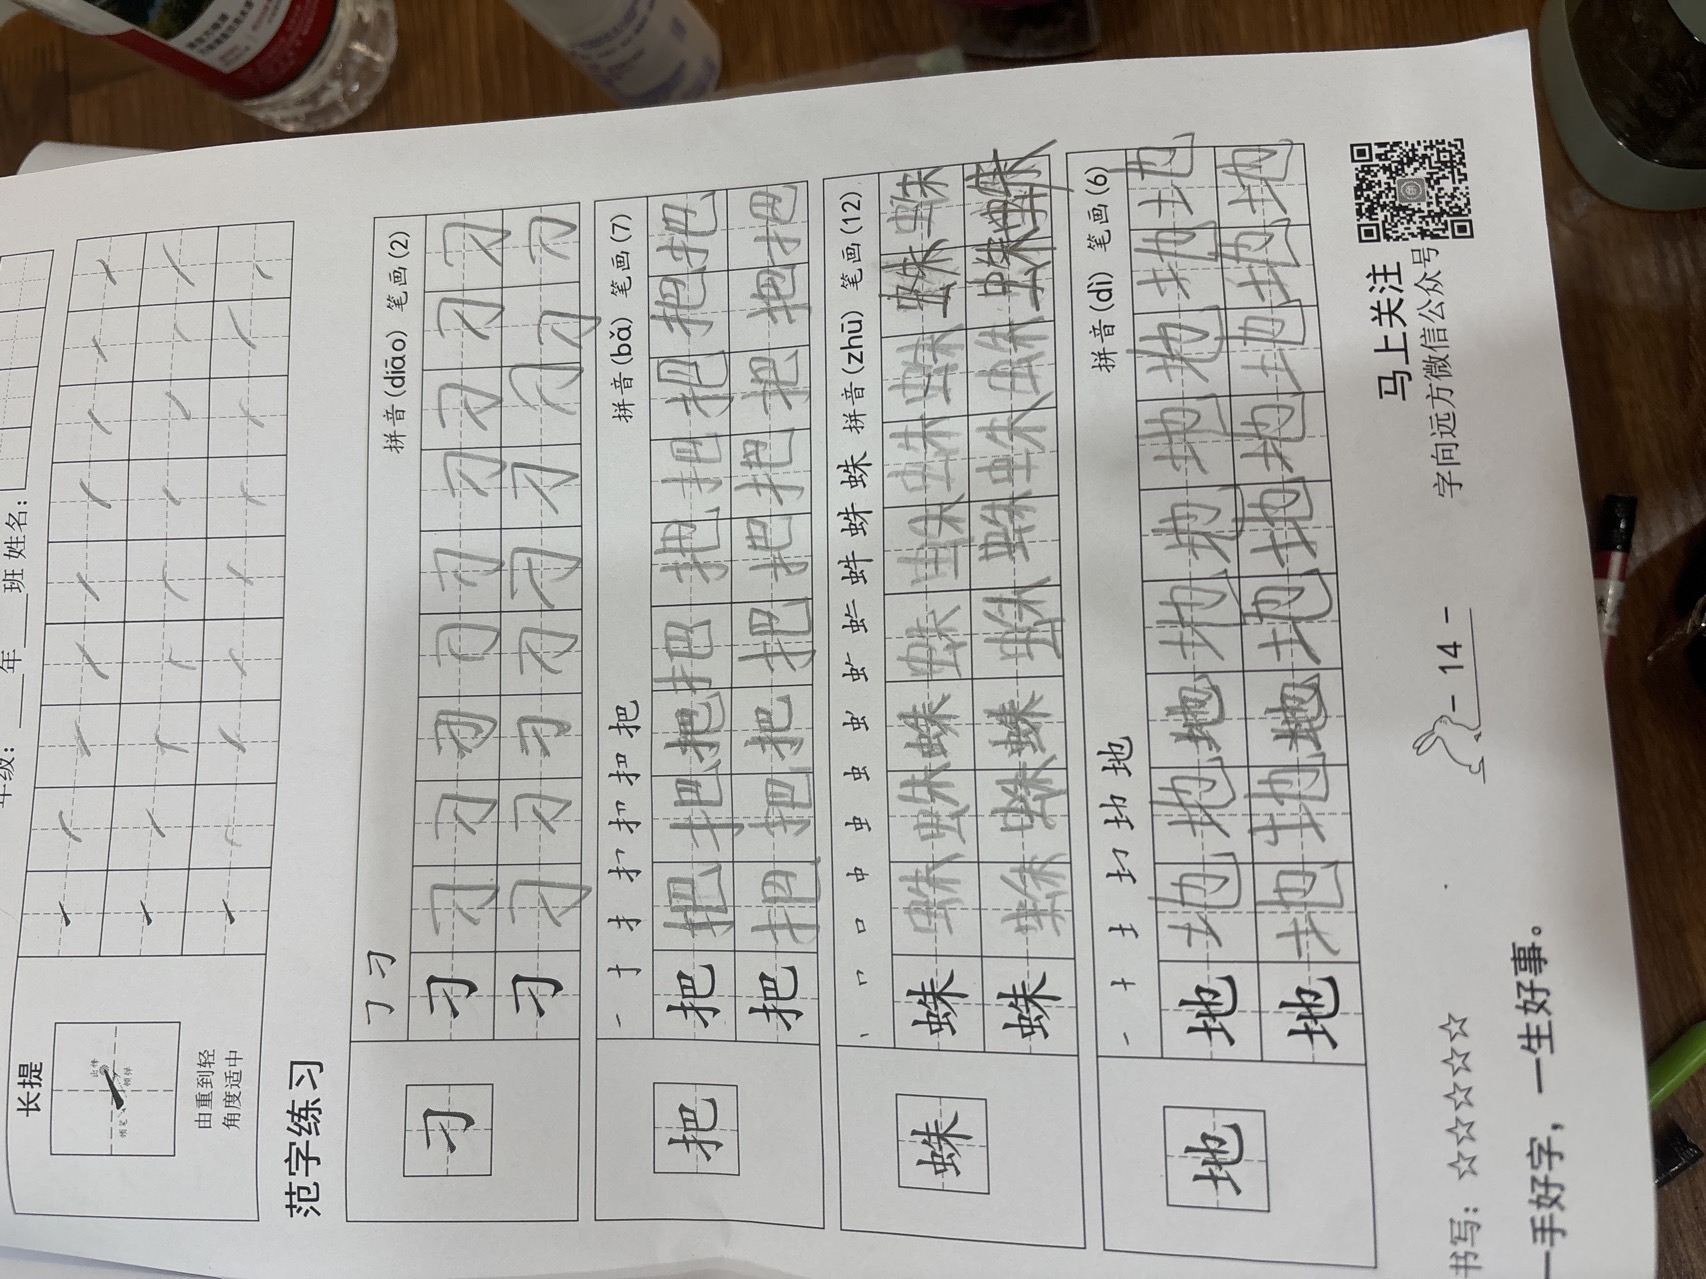 年级：____年____班 姓名：
长提
由重到轻
角度适中
范字练习
㇆ 刁 拼音(diāo) 笔画(2)
刁 刁 刁 刁 刁 刁 刁 刁 刁 刁 刁
刁 刁 刁 刁 刁 刁 刁 刁 刁 刁
把 把 拼音(bǎ) 笔画(7)
把 把 把 把 把 把 把 把 把 把 把
把 把 把 把 把 把 把 把 把 把
丨 口 口 中 虫 虫 蛛 蛛 拼音(zhū) 笔画(12)
蛛 蛛 蛛 蛛 蛛 蛛 蛛 蛛 蛛 蛛 蛛
蛛 蛛 蛛 蛛 蛛 蛛 蛛 蛛 蛛 蛛
一 十 土 地 拼音(dì) 笔画(6)
地 地 地 地 地 地 地 地 地 地 地
地 地 地 地 地 地 地 地 地 地
马上关注
字向远方微信公众号
- 14 -
书写：☆☆☆☆☆
一手好字，一生好事。